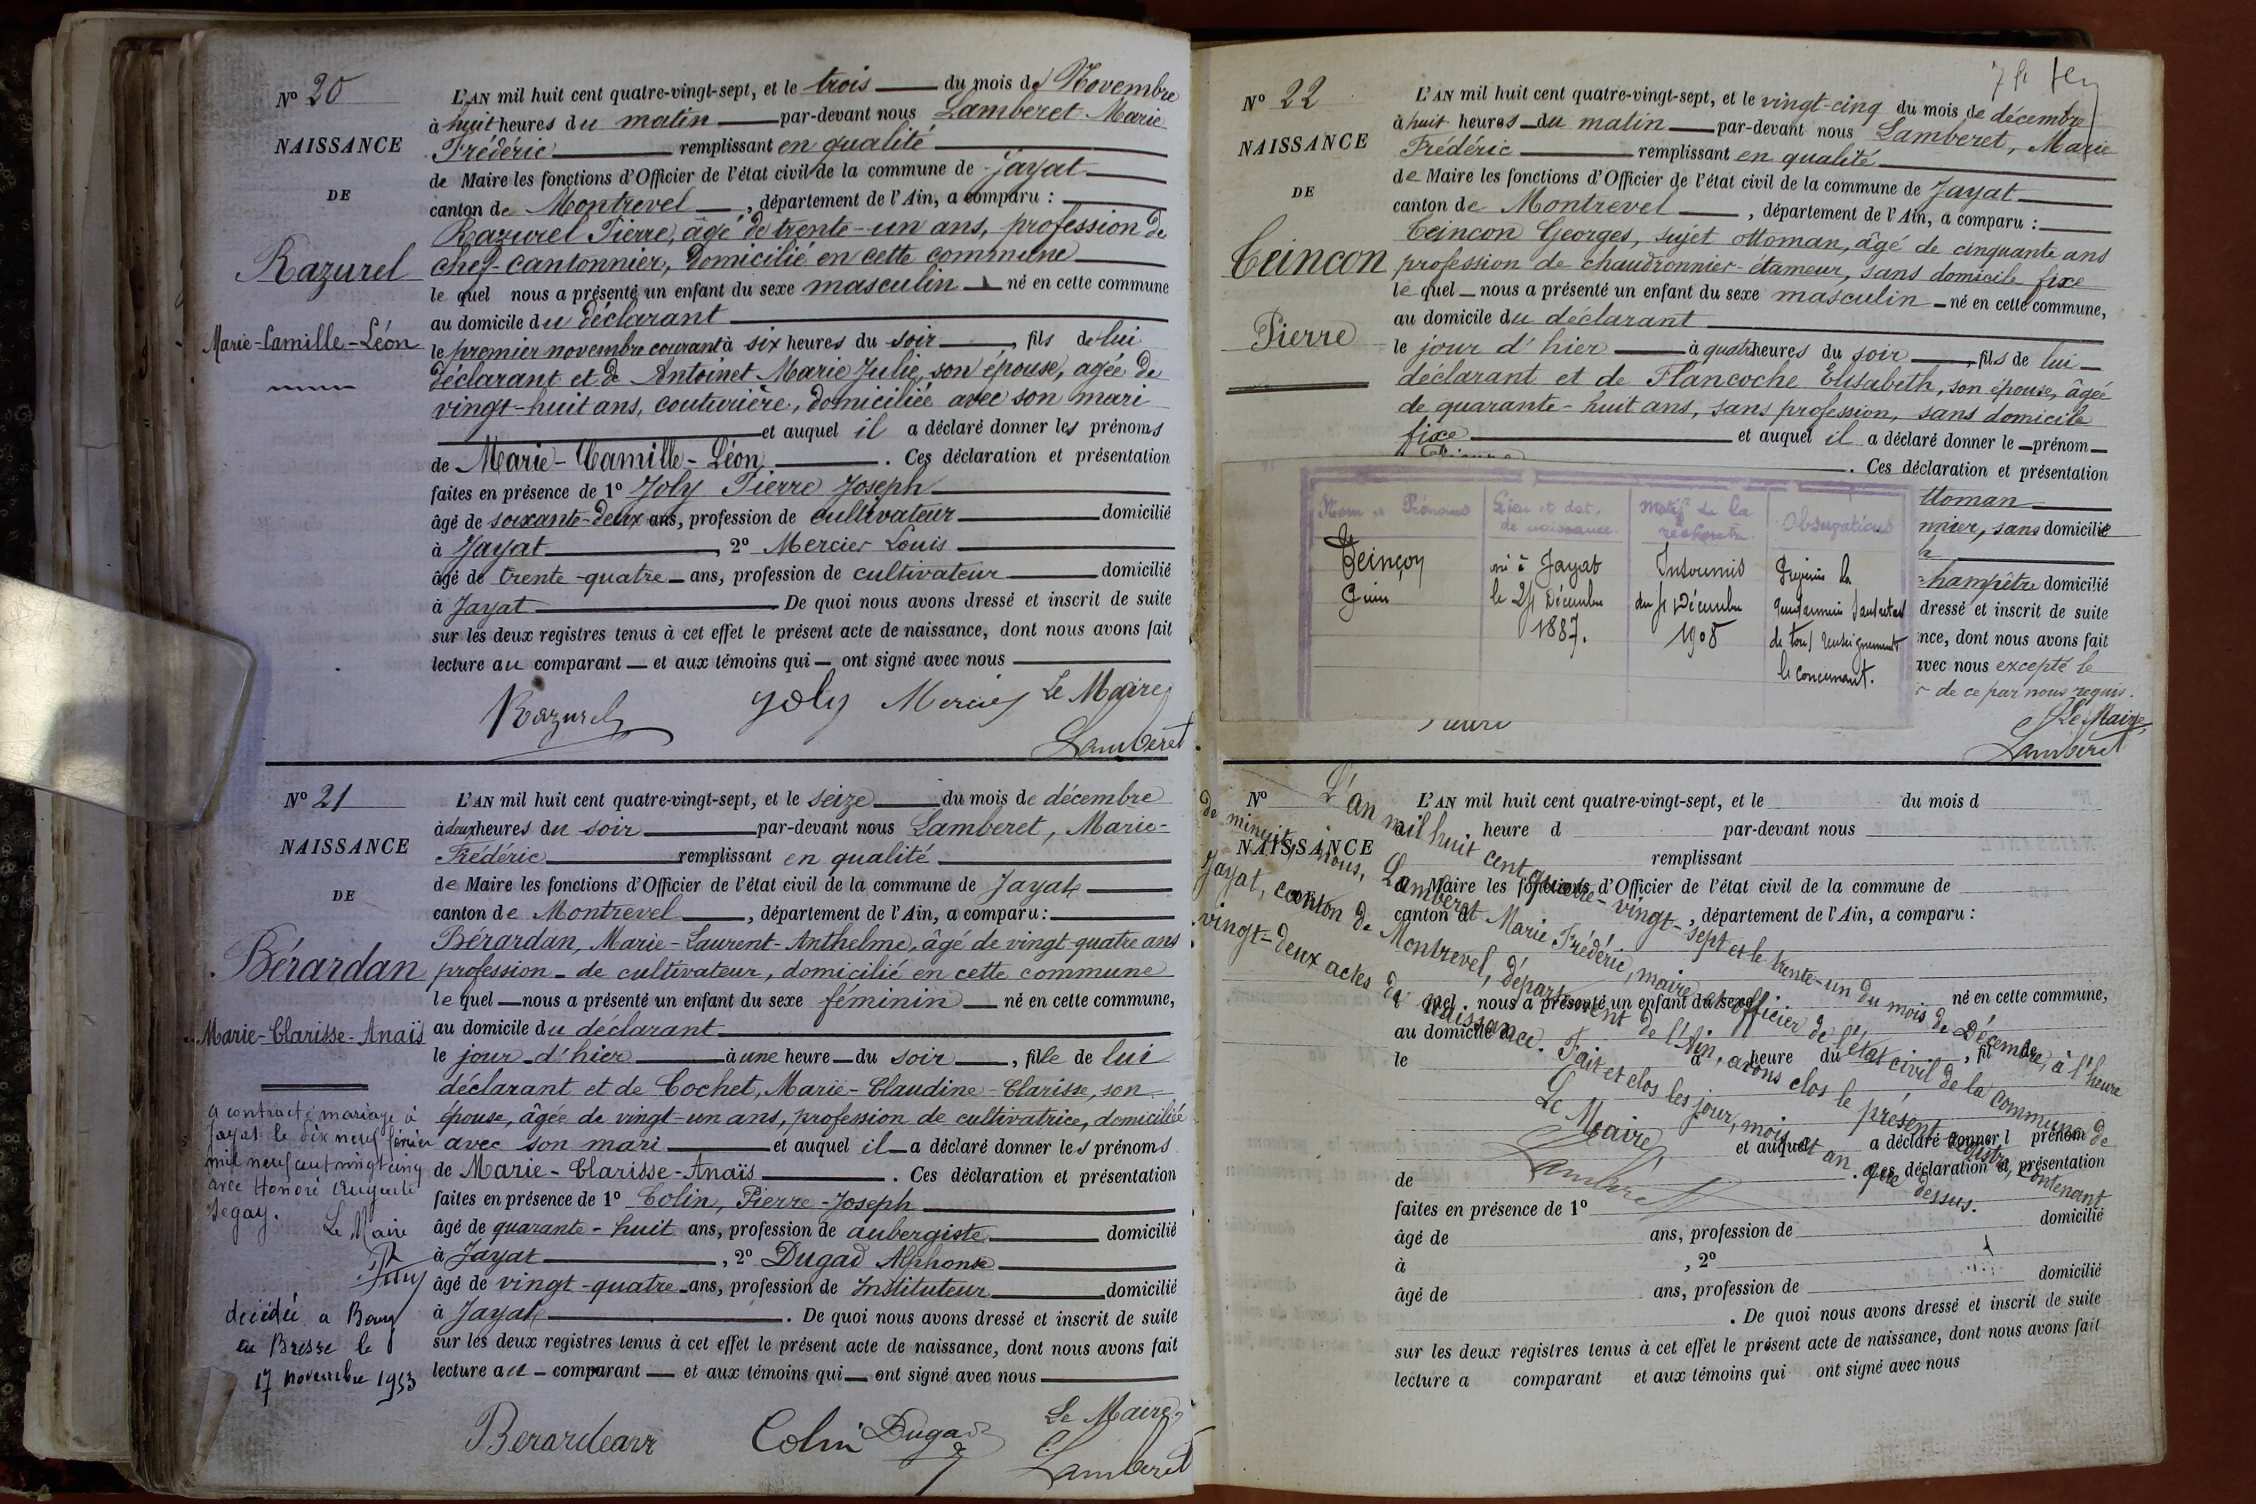 N° 20
NAISSANCE
DE
Razurel
Marie-Camille-Léon
L'AN mil huit cent quatre-vingt-sept, et le trois du mois de Novembre
à huit heures du matin par-devant nous Lamberet Marie
Frédéric remplissant en qualité
de Maire les fonctions d'Officier de l'état civil de la commune de Jayat
canton de Montrevel, département de l'Ain, a comparu :
Razurel Pierre, âgé de trente-un ans, profession de
chef-cantonnier, domicilié en cette commune
le quel nous a présenté un enfant du sexe masculin né en cette commune
au domicile du déclarant
le premier novembre courant à six heures du soir, fils de lui
déclarant et de Antoinet Marie Julie, son épouse, agée de
vingt-huit ans, couturière, domiciliée avec son mari
et auquel il a déclaré donner les prénoms
de Marie-Camille-Léon. Ces déclaration et présentation
faites en présence de 1° Joly Pierre Joseph
âgé de soixante-deux ans, profession de cultivateur domicilié
à Jayat, 2° Mercier Louis
âgé de trente-quatre ans, profession de cultivateur domicilié
à Jayat. De quoi nous avons dressé et inscrit de suite
sur les deux registres tenus à cet effet le présent acte de naissance, dont nous avons fait
lecture au comparant et aux témoins qui ont signé avec nous
Razurel Joly Mercier Le Maire
Lamberet
N° 21
NAISSANCE
DE
Bérardan
Marie-Clarisse-Anaïs
a contracté mariage à
Jayat le dix neuf février
mil neuf cent vingt cinq
avec Honoré Auguste
Segay.
Le Maire
décédée a Bourg
en Bresse le
17 novembre 1953
L'AN mil huit cent quatre-vingt-sept, et le seize du mois de décembre
à deux heures du soir par-devant nous Lamberet, Marie-
Frédéric remplissant en qualité
de Maire les fonctions d'Officier de l'état civil de la commune de Jayat
canton de Montrevel, département de l'Ain, a comparu :
Bérardan, Marie-Laurent-Anthelme, âgé de vingt-quatre ans
profession de cultivateur, domicilié en cette commune
le quel nous a présenté un enfant du sexe féminin né en cette commune,
au domicile du déclarant
le jour d'hier à une heure du soir, fille de lui
déclarant et de Cochet, Marie-Claudine-Clarisse, son
épouse, âgée de vingt-un ans, profession de cultivatrice, domiciliée
avec son mari et auquel il a déclaré donner les prénoms
de Marie-Clarisse-Anaïs. Ces déclaration et présentation
faites en présence de 1° Colin, Pierre-Joseph
âgé de quarante-huit ans, profession de aubergiste domicilié
à Jayat, 2° Dugad Alphonse
âgé de vingt-quatre ans, profession de Instituteur domicilié
à Jayat. De quoi nous avons dressé et inscrit de suite
sur les deux registres tenus à cet effet le présent acte de naissance, dont nous avons fait
lecture au comparant et aux témoins qui ont signé avec nous
Berardan Colin Dugad Le Maire
Lamberet
N° 22
NAISSANCE
DE
Teincon
Pierre
L'AN mil huit cent quatre-vingt-sept, et le vingt-cinq du mois de décembre
à huit heures du matin par-devant nous Lamberet, Marie
Frédéric remplissant en qualité
de Maire les fonctions d'Officier de l'état civil de la commune de Jayat
canton de Montrevel, département de l'Ain, a comparu :
Teincon Georges, sujet ottoman, âgé de cinquante ans
profession de chaudronnier-étameur, sans domicile fixe
le quel nous a présenté un enfant du sexe masculin né en cette commune,
au domicile du déclarant
le jour d'hier à quatre heures du soir, fils de lui
déclarant et de Flancoche Elisabeth, son épouse, âgée
de quarante-huit ans, sans profession, sans domicile
fixe et auquel il a déclaré donner le prénom
. Ces déclaration et présentation
ttoman
nnier, sans domicilié
hampêtre domicilié
dressé et inscrit de suite
nce, dont nous avons fait
avec nous excepté le
de ce par nous requis.
Le Maire,
Lamberet
Nom et Prénoms
Lieu et date de naissance
Motif de la recherche
Observations
Teinçon
né à Jayat
le 24 Décembre
1887.
Insoumis
du 31 Décembre
1908
Prévenir la
gendarmerie
de tous renseignements
le concernant.
N°
NAISSANCE
L'AN mil huit cent quatre-vingt-sept, et le du mois d
heure d par-devant nous
remplissant
Maire les fonctions d'Officier de l'état civil de la commune de
canton d, département de l'Ain, a comparu :
l quel nous a présenté un enfant du sexe né en cette commune,
au domicile d
le à heure du, fil de
et auquel a déclaré donner l prénom
de. Ces déclaration et présentation
faites en présence de 1°
âgé de ans, profession de domicilié
à, 2°
âgé de ans, profession de domicilié
. De quoi nous avons dressé et inscrit de suite
sur les deux registres tenus à cet effet le présent acte de naissance, dont nous avons fait
lecture a comparant et aux témoins qui ont signé avec nous
L'an mil huit cent quatre-vingt-sept et le trente-un du mois de Décembre, à l'heure
de minuit, nous, Lamberet Marie Frédéric, maire et officier de l'état civil de la commune de
Jayat, canton de Montrevel, département de l'Ain, avons clos le présent registre, contenant
vingt-deux actes de naissance. Fait et clos les jour, mois et an que dessus.
Le Maire,
Lamberet